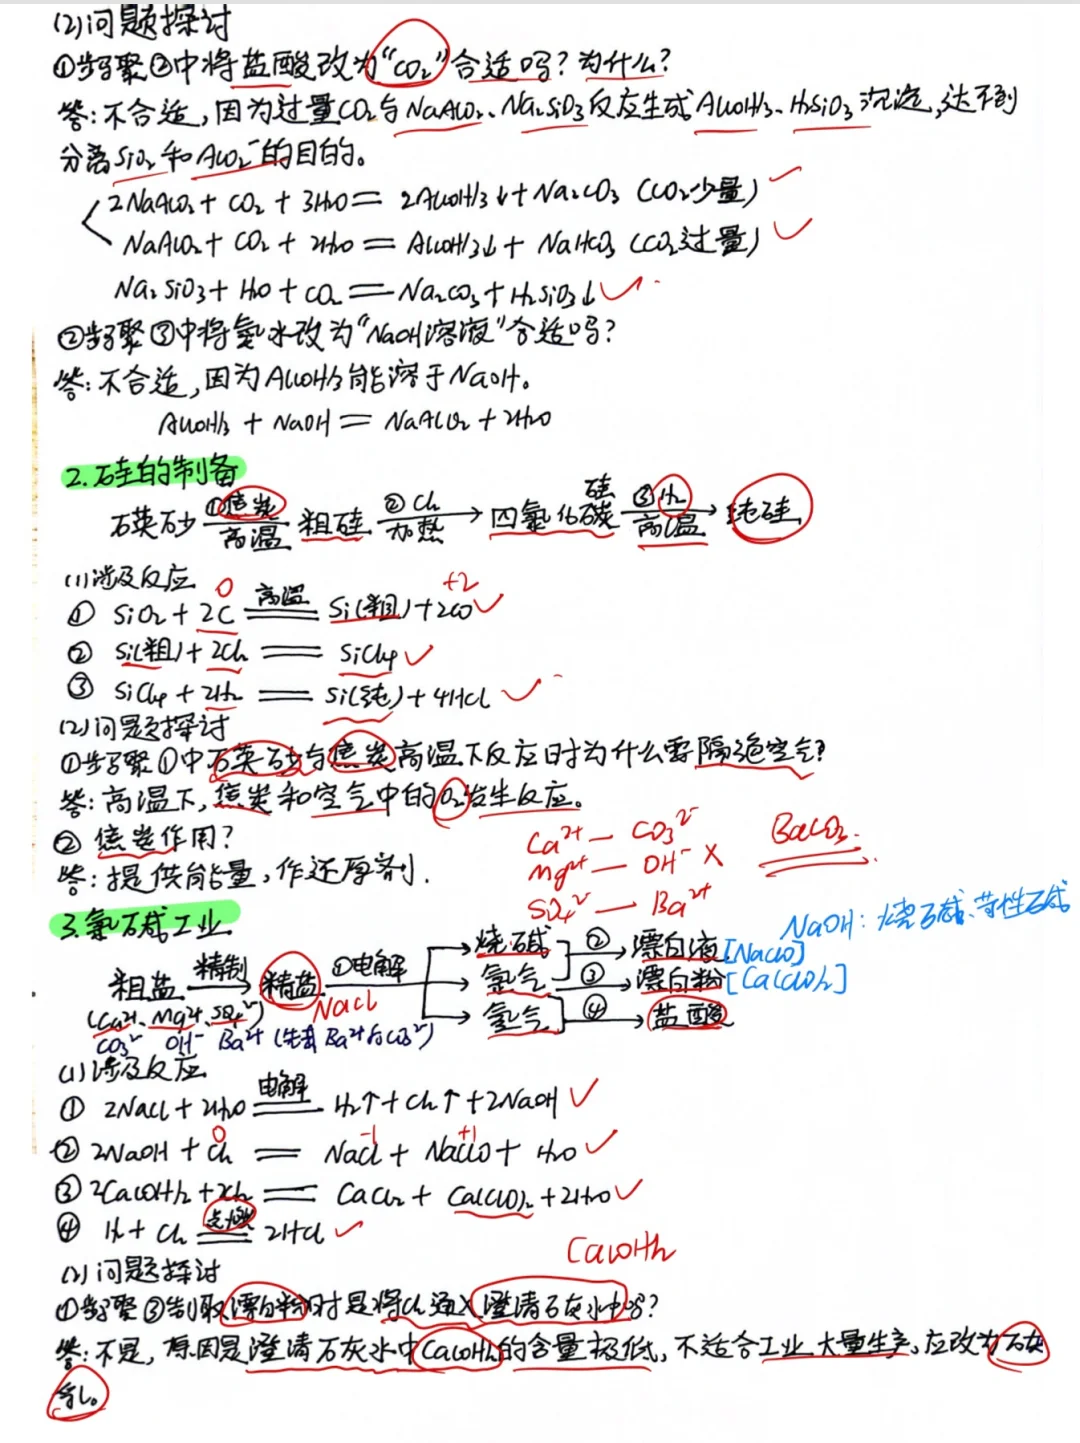 (2)问题探讨
①步骤②中将盐酸改为"CO₂"合适吗?为什么?
答:不合适,因为过量CO₂与NaAlO₂、Na₂SiO₃反应生成Al(OH)₃、H₂SiO₃沉淀,达不到
分离SiO₂和AlO₂⁻的目的。
2NaAlO₂ + CO₂ + 3H₂O = 2Al(OH)₃↓ + Na₂CO₃ (CO₂少量)
NaAlO₂ + CO₂ + 2H₂O = Al(OH)₃↓ + NaHCO₃ (CO₂过量)
Na₂SiO₃ + H₂O + CO₂ = Na₂CO₃ + H₂SiO₃↓
②步骤③中将氨水改为"NaOH溶液"合适吗?
答:不合适,因为Al(OH)₃能溶于NaOH。
Al(OH)₃ + NaOH = NaAlO₂ + 2H₂O
2.硅的制备
石英砂 ①焦炭 高温 粗硅 ②Cl₂ 加热 四氯化碳 硅 ③H₂ 高温 纯硅
(1)涉及反应 0 +2
① SiO₂ + 2C 高温 Si(粗) + 2CO
② Si(粗) + 2Cl₂ = SiCl₄
③ SiCl₄ + 2H₂ = Si(纯) + 4HCl
(2)问题探讨
①步骤①中石英砂与焦炭高温下反应时为什么要隔绝空气?
答:高温下,焦炭和空气中的O₂发生反应。
Ca²⁺ — CO₃²⁻ BaCO₃
② 焦炭作用?
Mg²⁺ — OH⁻ ×
答:提供能量,作还原剂.
SO₄²⁻ — Ba²⁺
3.氯碱工业
NaOH:烧碱、苛性碱
粗盐 精制 精盐 ①电解 NaCl
烧碱 ② 漂白液 [NaClO]
氯气 ③ 漂白粉 [Ca(ClO)₂]
氢气 ④ 盐酸
(Ca²⁺、Mg²⁺、SO₄²⁻)
CO₃²⁻ OH⁻ Ba²⁺ (先去Ba²⁺后CO₃²⁻)
(1)涉及反应
① 2NaCl + 2H₂O 电解 H₂↑ + Cl₂↑ + 2NaOH
0 -1 +1
② 2NaOH + Cl₂ = NaCl + NaClO + H₂O
③ 2Ca(OH)₂ + 2Cl₂ = CaCl₂ + Ca(ClO)₂ + 2H₂O
④ H₂ + Cl₂ 点燃 2HCl
Ca(OH)₂
(2)问题探讨
①步骤③制取漂白粉时是将Cl₂通入澄清石灰水中吗?
答:不是,原因是澄清石灰水中Ca(OH)₂的含量极低,不适合工业大量生产,应改为石灰
乳。